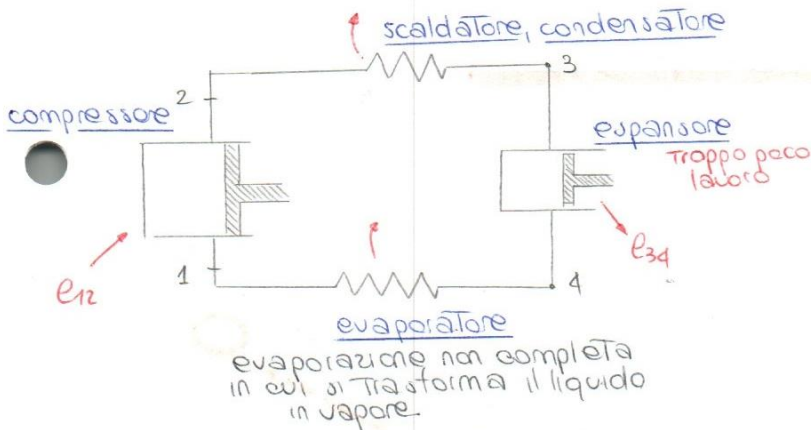 scaldatore, condensatore
3
2
compressore
espansore
troppo poco
lavoro
e12
e34
1
4
evaporatore
evaporazione non completa
in cui si trasforma il liquido
in vapore